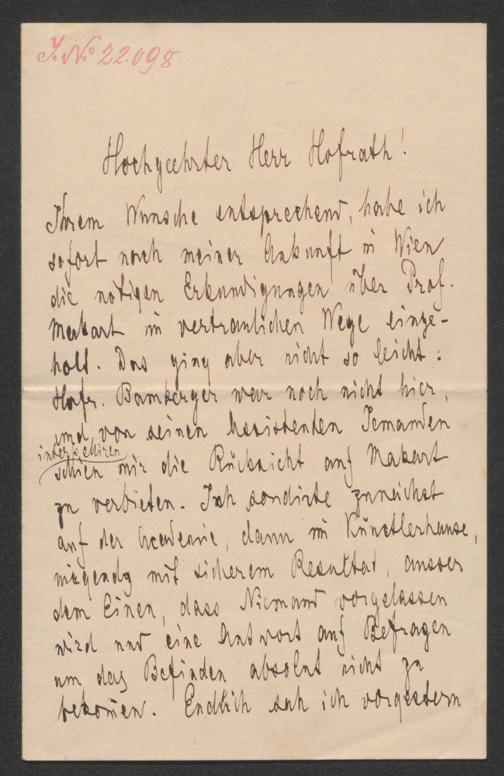 J. No 22.098
Hochgeehrter Herr Hofrath!
Ihrem Wunsche entsprechend, habe ich
sofort nach meiner Ankunft in Wien
die nötigen Erkundigungen über Prof.
Makart in vertraulichen Wege einge-
holt. Das ging aber nicht so leicht:
Hofr. Bamberger war noch nicht hier,
und von seinen Assistenten Jemanden
interpelliren
schien mir die Rücksicht auf Makart
zu verbieten. Ich sondirte zunächst
auf der Academie, dann im Künstlerhause,
nirgends mit sicherem Resultat, ausser
dem Einen, dass Niemand vorgelassen
wird und eine Antwort auf Befragen
um das Befinden absolut nicht zu
bekomen. Endlich sah ich vorgestern